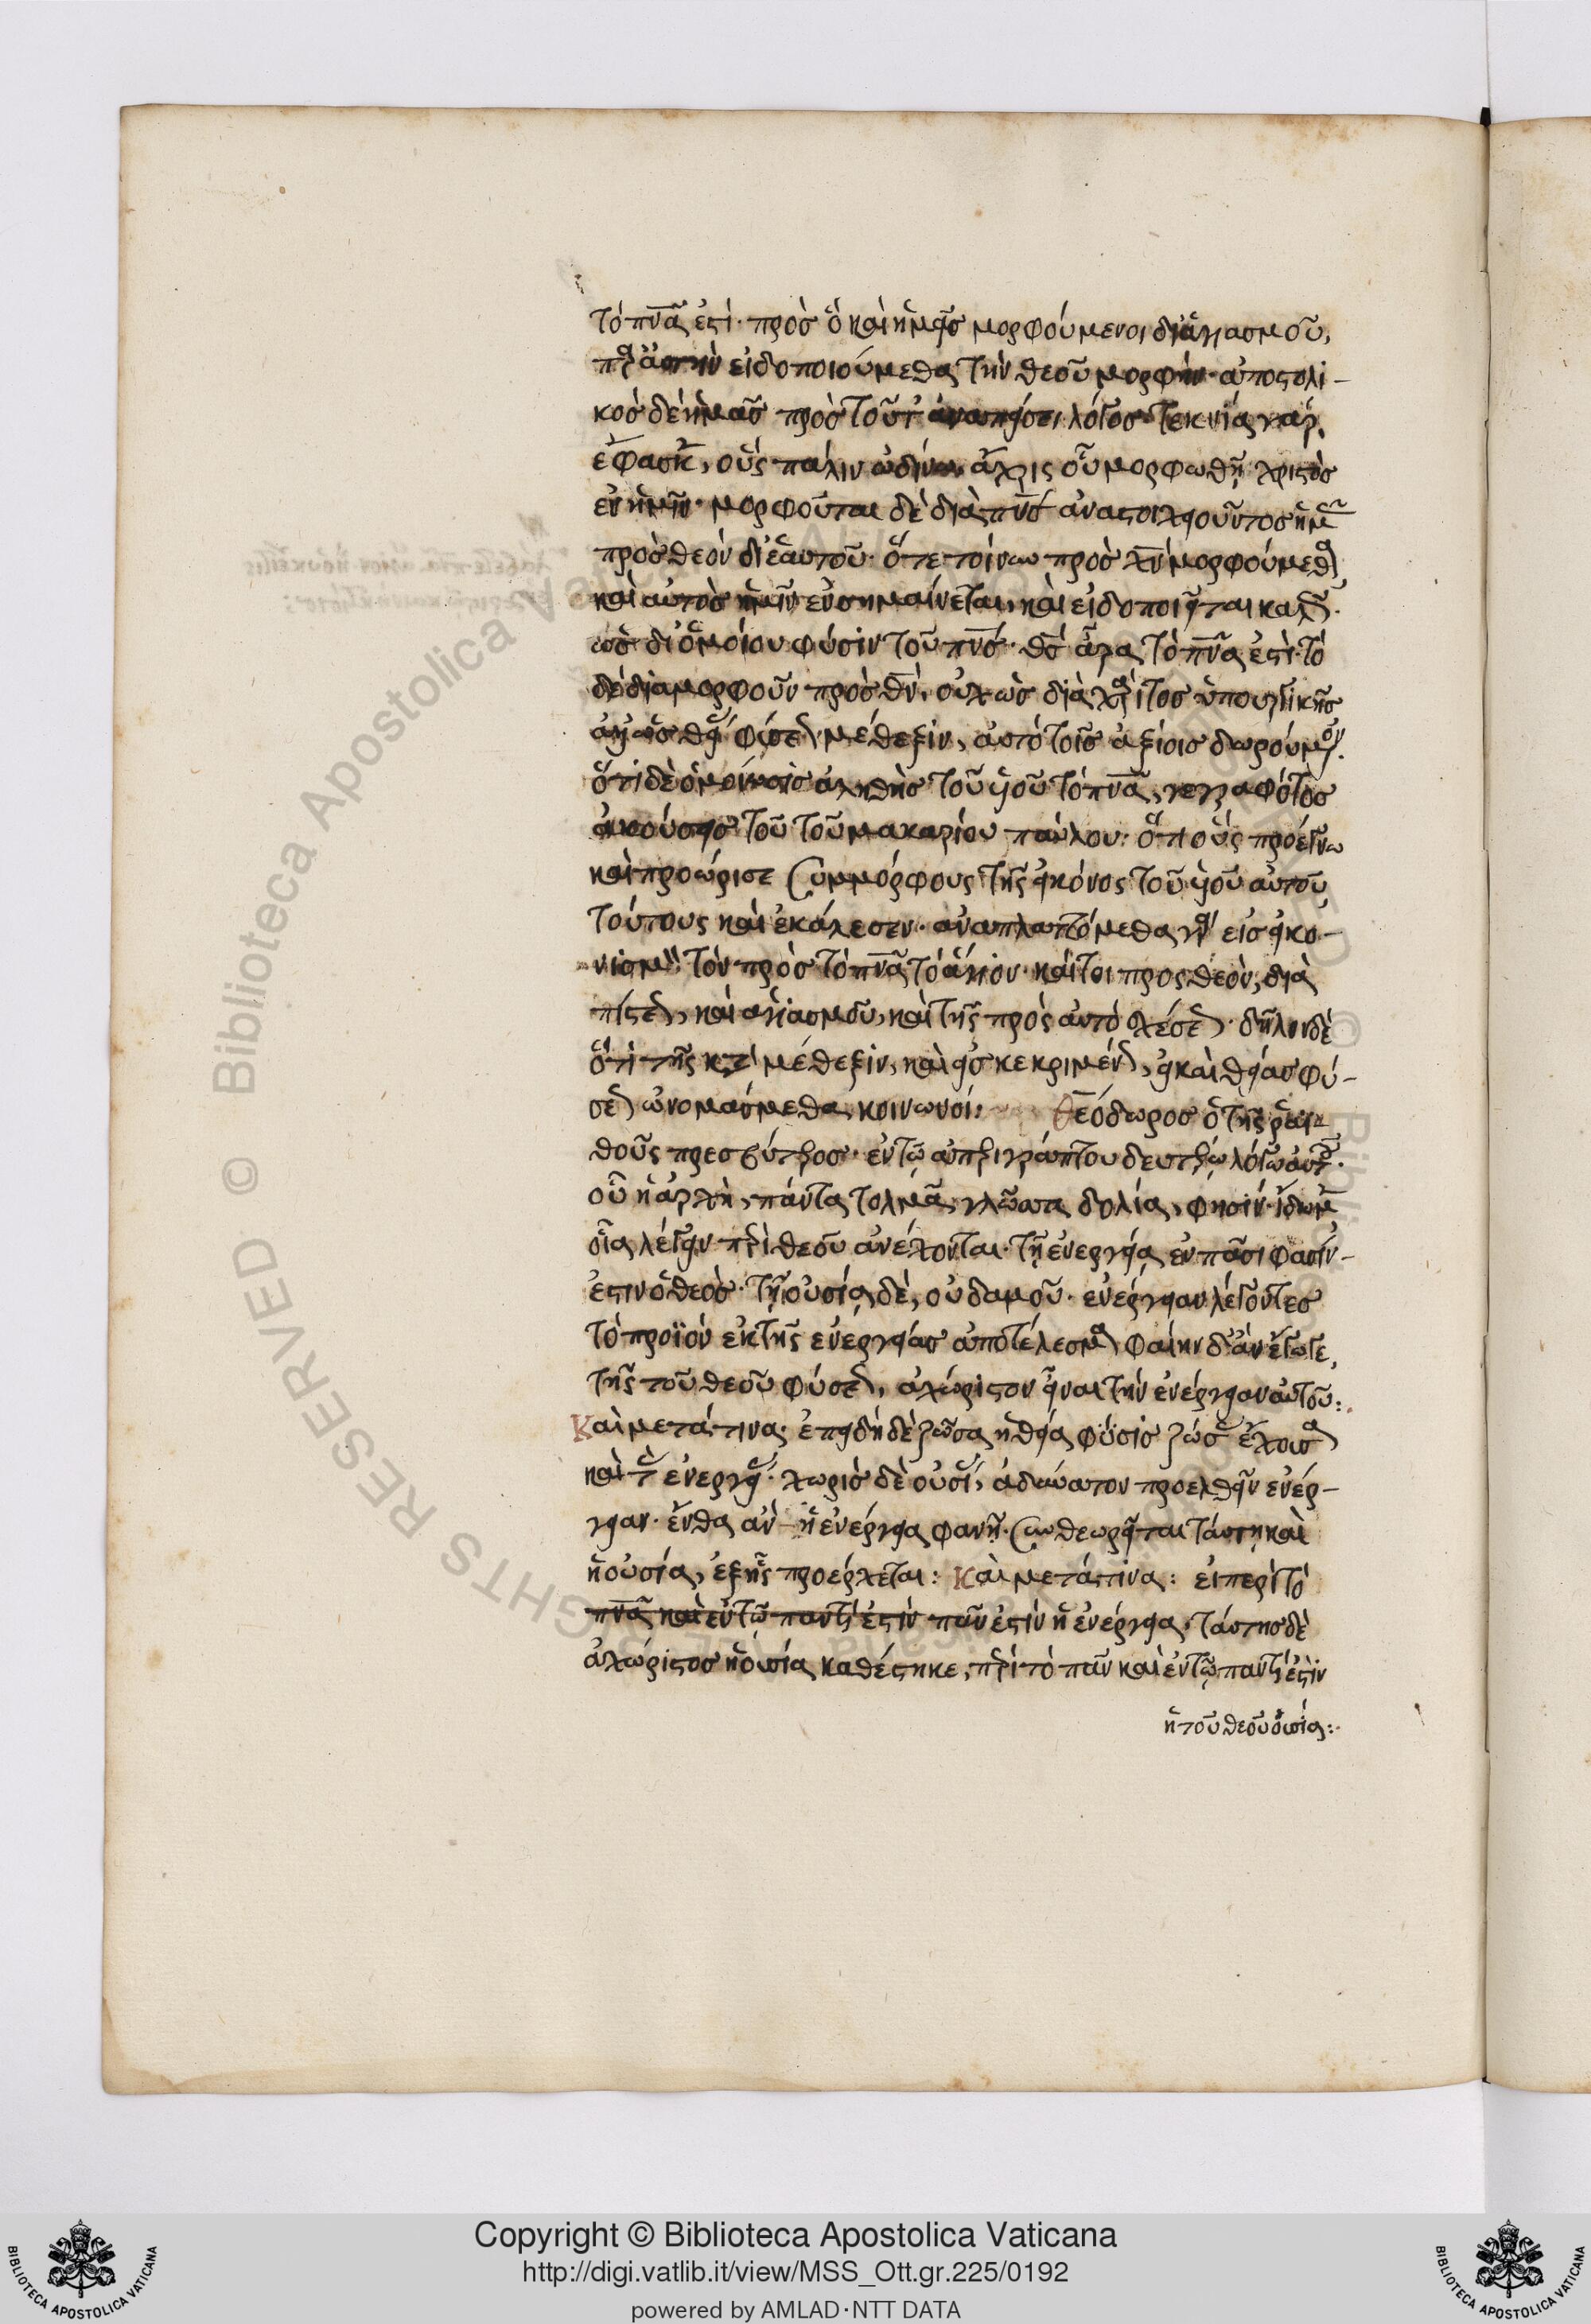 τὸ πν̅α ἐστί· πρὸς ὃ καὶ ἡμεῖς μορφούμενοι δι' ἁγιασμοῦ,
αὐτὴν εἰδοποιούμεθα τὴν θεοῦ μορφήν· ἀποστολι-
κὸς δὲ ἡμᾶς πρὸς τοῦτ' λόγος· τεκνία γὰρ
ἔφασκεν, οὓς πάλιν ὠδίνω ἄχρις οὗ μορφωθῇ χριστὸς
ἐν ἡμῖν· μορφοῦται δὲ διὰ πν̅ς ἀναστοιχειοῦντος ἡμᾶς
πρὸς θεὸν δι' ἑαυτοῦ· ὅτε τοίνυν πρὸς χν̅ μορφούμεθα
καὶ αὐτὸς ἡμῖν ἐνσημαίνεται, καὶ εἰδοποιεῖται καλῶς·
ὡς δι' ὁμοίου φύσιν τοῦ πν̅ς· θς̅ ἄρα τὸ πν̅α ἐστὶ· τὸ
δὲ διαμορφοῦν πρὸς θν̅, οὐχ ὡς διὰ χάριτος ὑπουργικῆς
ἀλλ' ὡς θείας φύσεως μέθεξιν, αὐτὸ τοῖς ἀξίοις δωρούμενον.
ὅτι δὲ ὁμοίωσις ἀληθὴς τοῦ υἱοῦ τὸ πν̅α, γεγραφότος
ἀκούσεις τοῦ τοῦ μακαρίου παύλου· ὅτι οὓς προέγνω
καὶ προώρισε συμμόρφους τῆς εἰκόνος τοῦ υἱοῦ αὐτοῦ,
τούτους καὶ ἐκάλεσεν· ἀναπλαττόμεθα γὰρ εἰς εἰκο-
νισμὸν τὸν πρὸς τὸ πν̅α τὸ ἅγιον· καίτοι πρὸς θεὸν, διὰ
πίστεως, καὶ ἁγιασμοῦ, καὶ τῆς πρὸς αὐτὸ σχέσεως· δῆλον δὲ
ὅτι τῆς κατὰ μέθεξιν, καὶ εἰς κεκριμένως, εἰ καὶ θείας φύ-
σεως ὠνομάσμεθα κοινωνοί: Θεόδωρος ὁ τῆς ῥαι-
θοῦς πρεσβύτερος· ἐν τῷ ἀπεριγράπτου δευτέρῳ λόγῳ αὐτοῦ·
οὗ ἡ ἀρχὴ, πάντα τολμᾶ γλῶσσα δολία, φησίν· ἴδωμεν
οἷα λέγειν περὶ θεοῦ ἀνέχονται· τῇ ἐνεργείᾳ ἐν πᾶσι φασὶν-
ἐστιν ὁ θεὸς· τῇ οὐσίᾳ δὲ, οὐδαμοῦ· ἐνέργειαν λέγοντες
τὸ προϊὸν ἐκ τῆς ἐνεργείας ἀποτέλεσμα φαίην δ' ἂν ἔγωγε,
τῆς τοῦ θεοῦ φύσεως, ἀχώριστον εἶναι τὴν ἐνέργειαν αὐτοῦ:
Καὶ μετά τινα· ἐπειδὴ δὲ ζῶσα ἡ θεία φύσις ζώσας ἔχουσα
καὶ τὰς ἐνεργείας· χωρὶς δὲ οὐσίας, ἀδύνατον προελθεῖν ἐνέρ-
γειαν· ἔνθα ἂν ἡ ἐνέργεια φανῇ· συνθεωρεῖται ταύτη καὶ
ἡ οὐσία, ἐξ ἧς προέρχεται: Καὶ μετά τινα: εἰ περὶ τὸ
πν̅α καὶ ἐν τῷ παντὶ ἐστὶν πᾶν ἐστὶν ἡ ἐνέργεια, ταύτης δὲ
ἀχώριστος ἡ οὐσία καθέστηκε, περὶ τὸ πᾶν καὶ ἐν τῷ παντὶ ἐστὶν
ἡ τοῦ θεοῦ οὐσία:
Copyright © Biblioteca Apostolica Vaticana
http://digi.vatlib.it/view/MSS_Ott.gr.225/0192
powered by AMLAD·NTT DATA